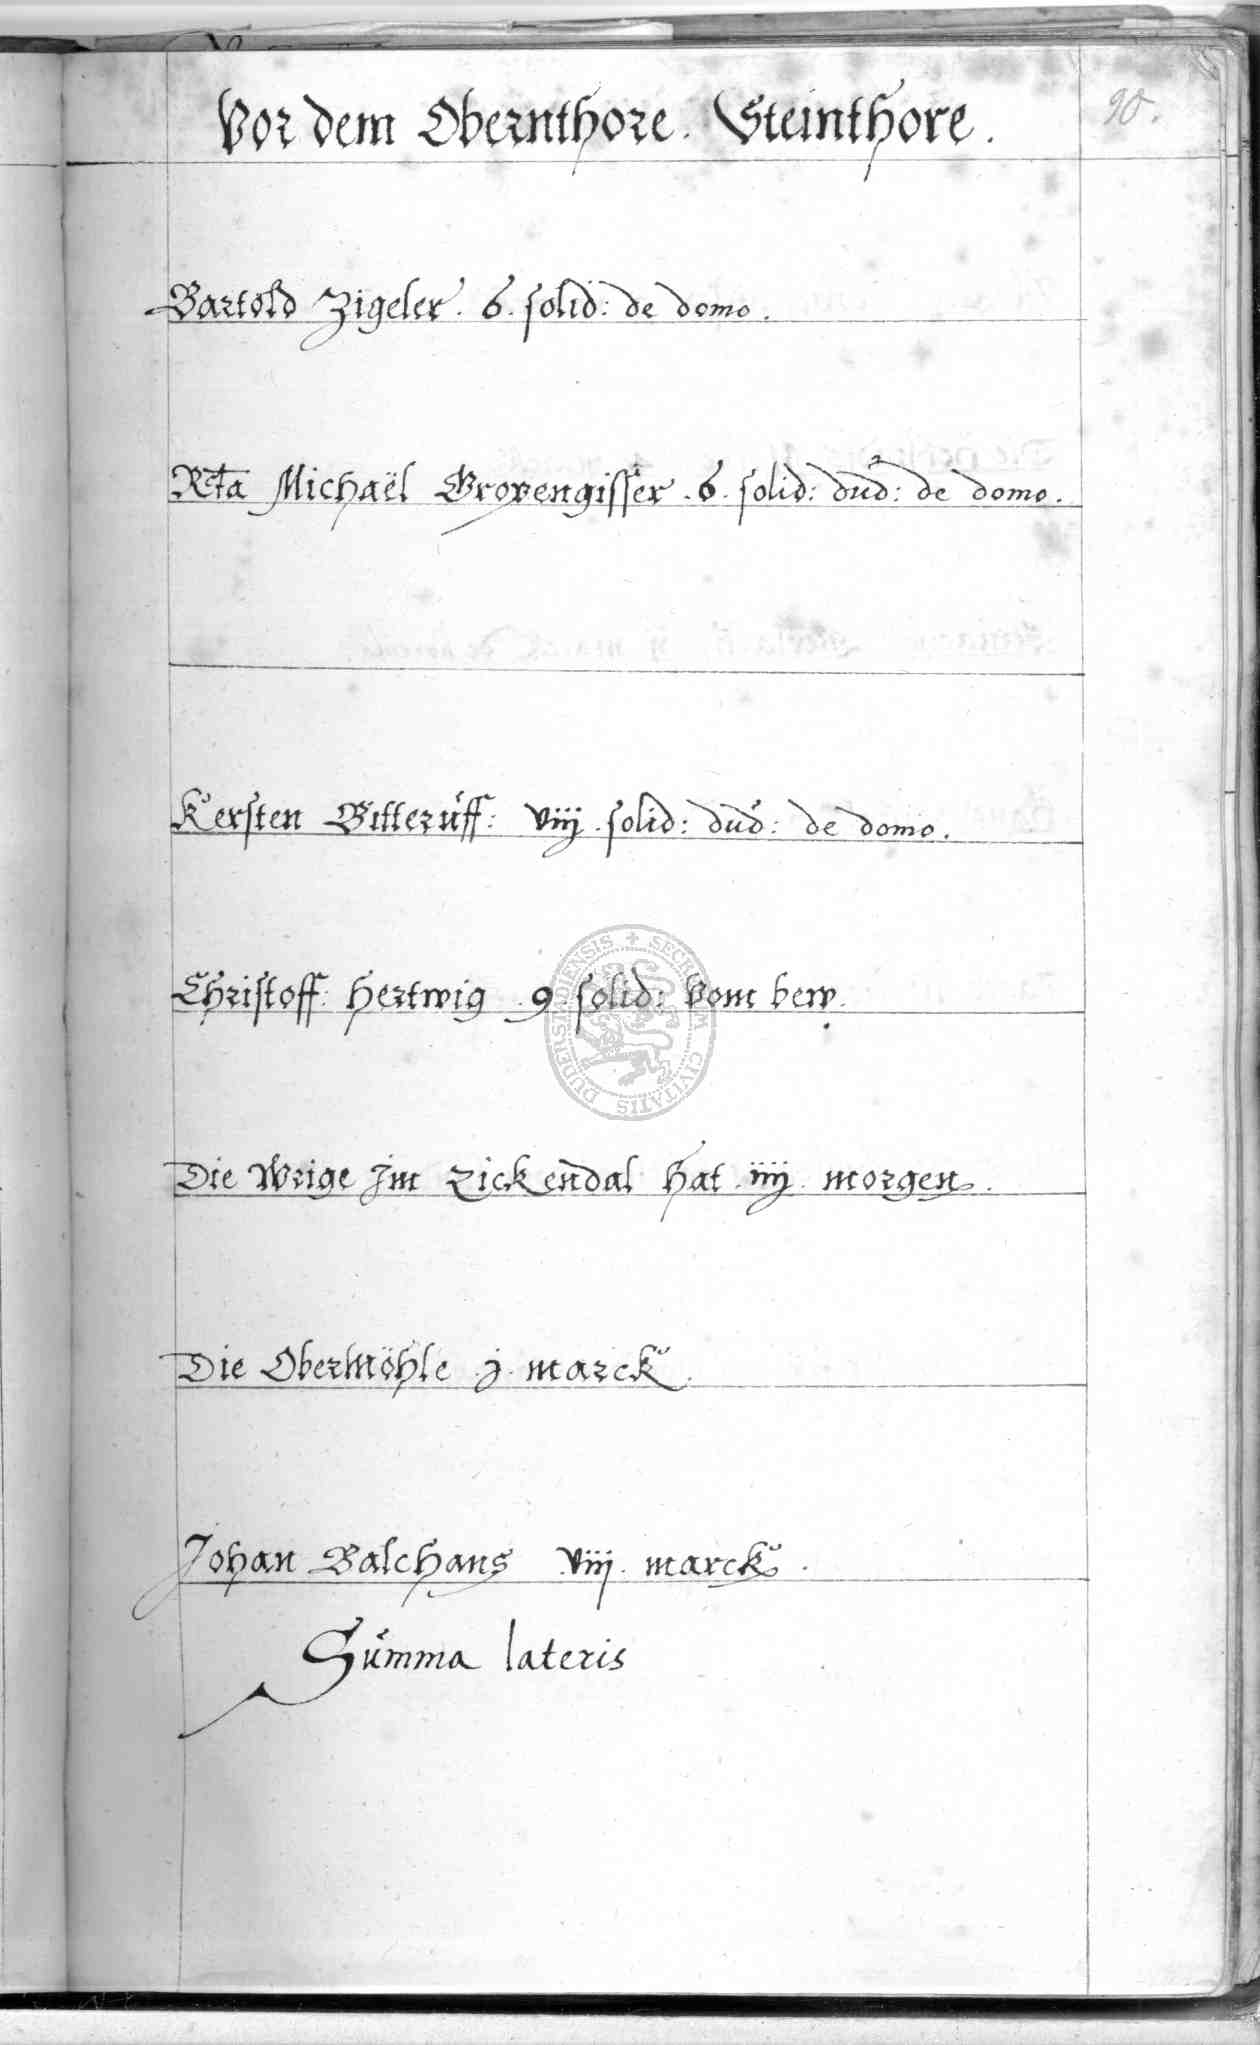 Vor dem Obernthore. Steinthore.
90.
Bartold Zigeler. 6. solid: de domo.
Rcta Michaël Gropengisser. 6. solid: dud: de domo.
Kersten Bitteruff: viij. solid: dud: de domo.
Christoff: Hertwig 9 solid: vom bew.
Die Wrige Jm Zickendal hat iiij. morgen.
Die Obermöhle j. marck.
Johan Balchans viij. marck.
Summa lateris
SECRETUM CIVITATIS DUDERSTADIENSIS